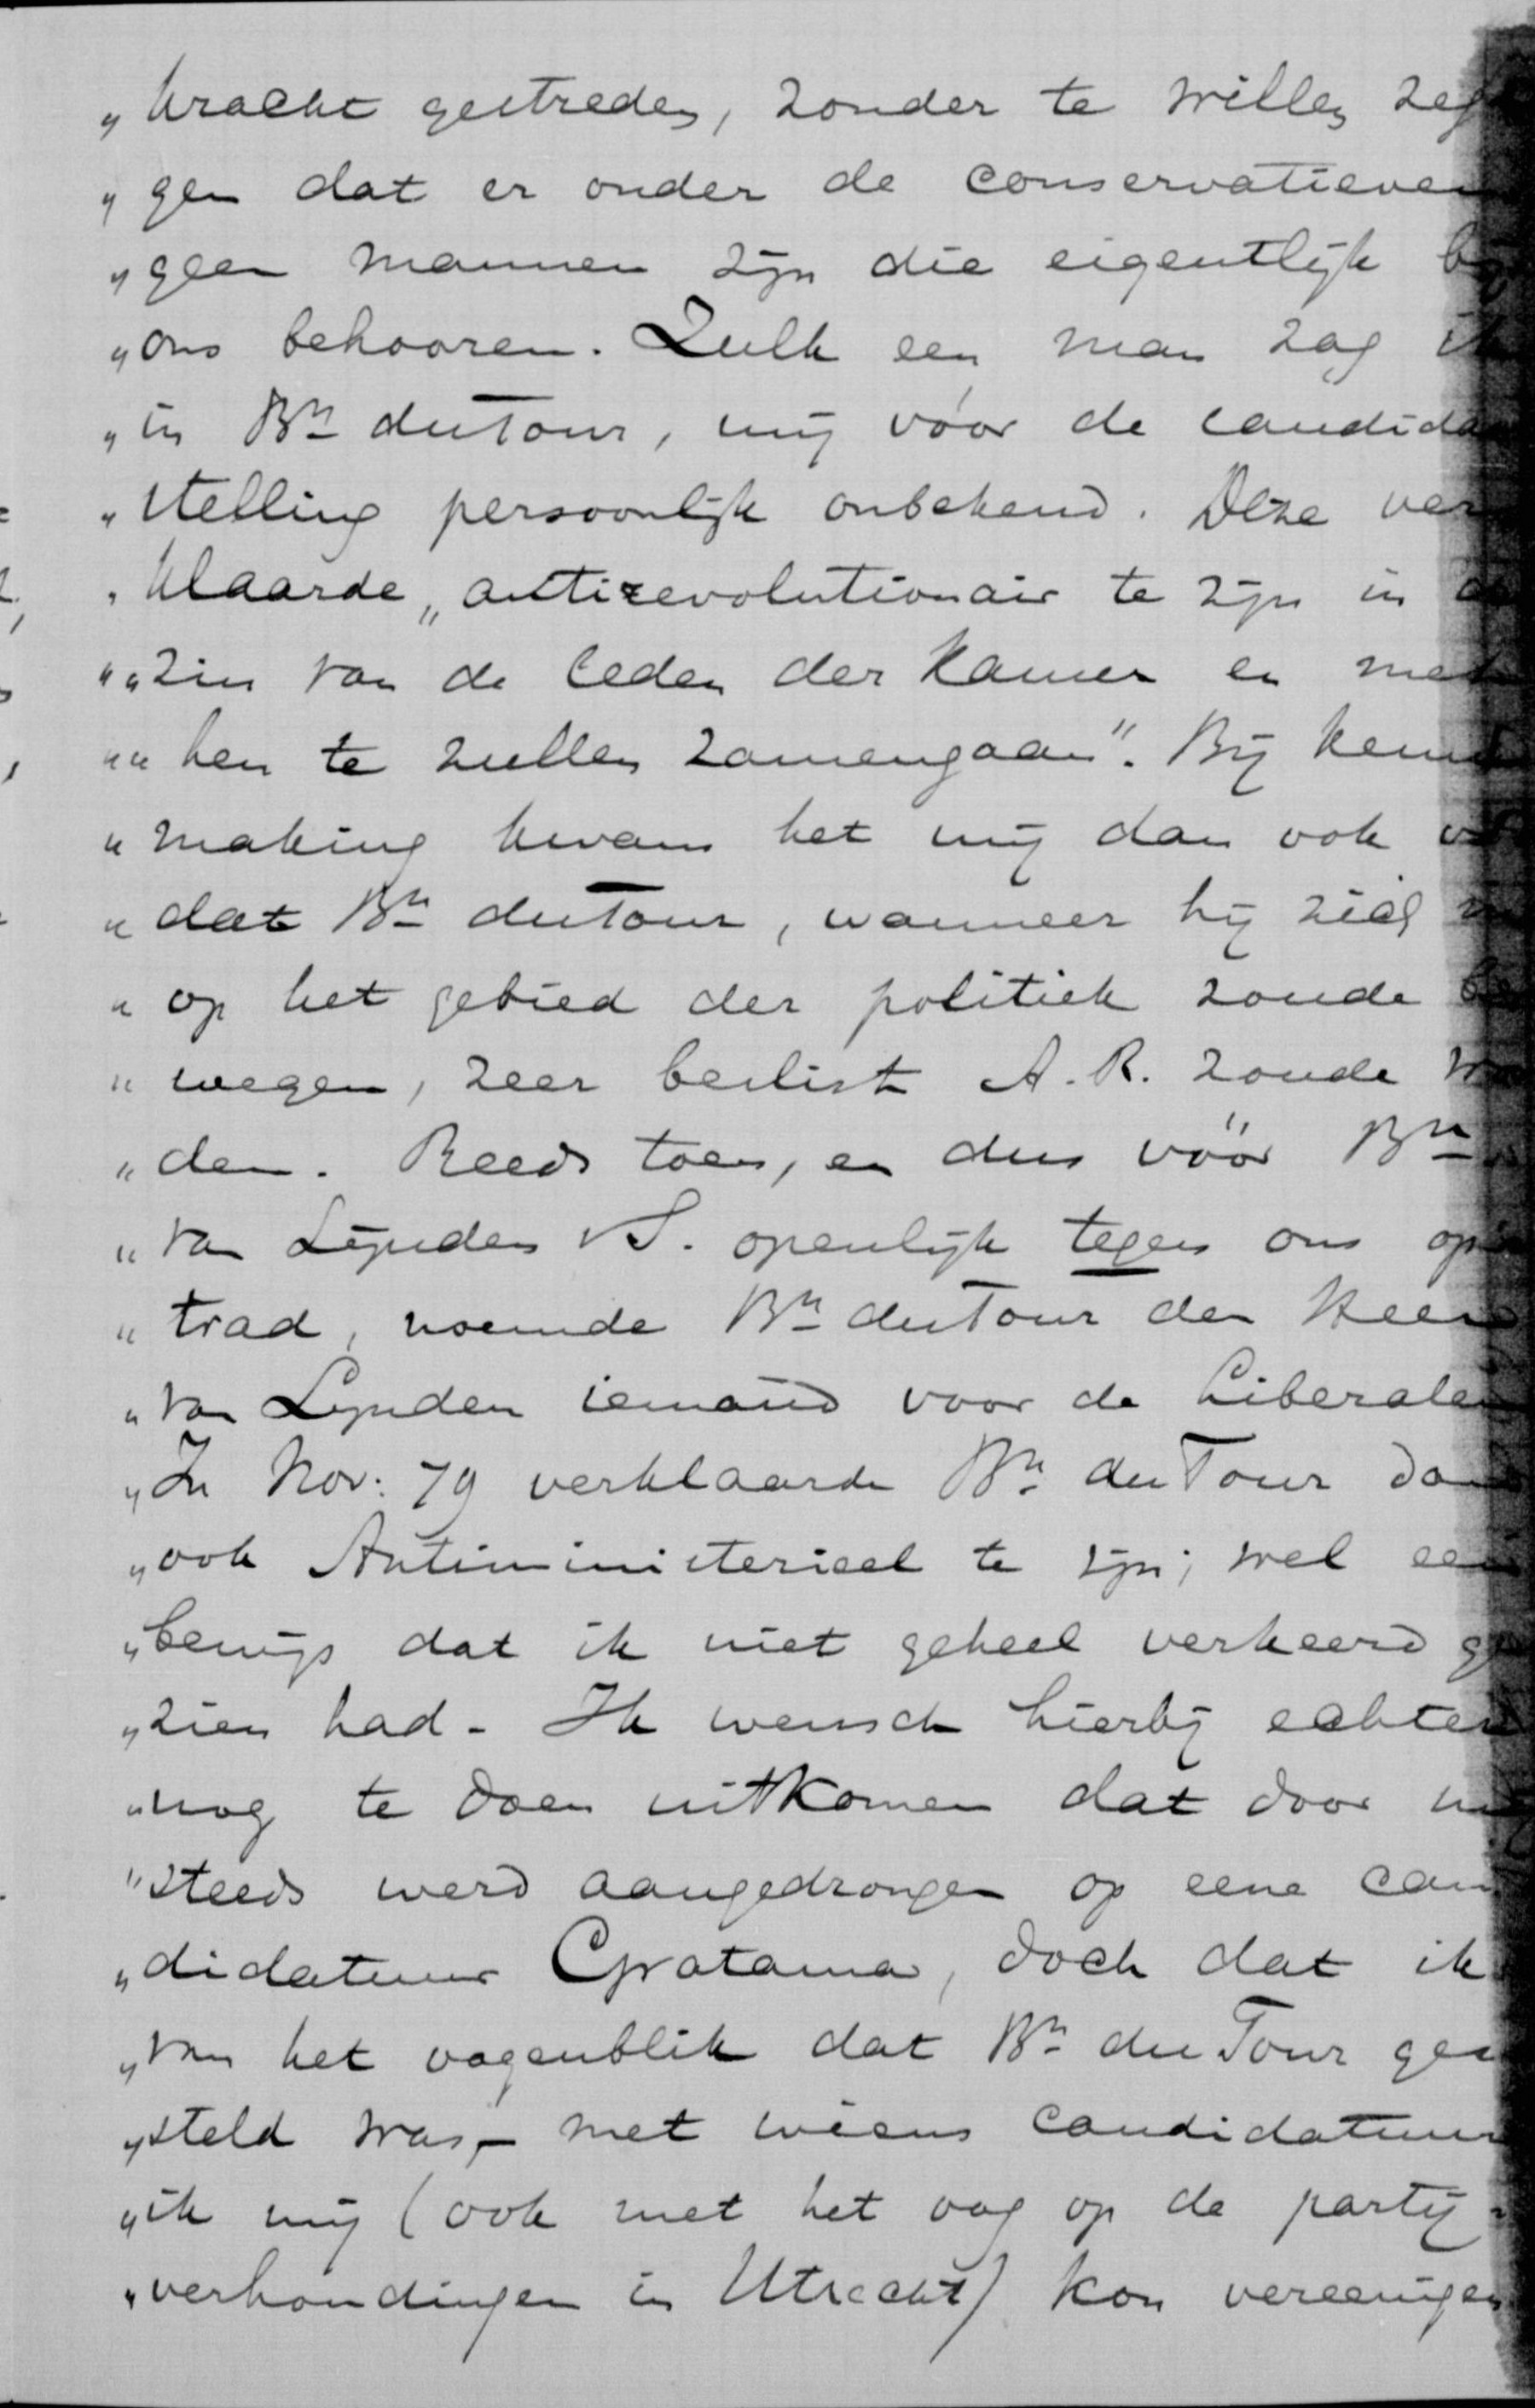 „kracht gestreden, zonder te willen zeg
„gen dat er onder de conservatieven
„geen mannen zijn die eigentlijk bij
„ons behooren. Zulk een man zag ik
„in Bn duTour, mij vóór de candida
„stelling persoonlijk onbekend. Deze ver
„klaarde „antirevolutionair te zijn in de
„„zin van de leden der Kamer en met
„„hen te zullen zamengaan". Bij kennis
„making kwam het mij dan ook
„dat Bn duTour, wanneer hij zich
„op het gebied der politiek zoude be
„wegen, zeer beslist A.R. zoude
„den. Reeds toen, en dus vóór Bn
„van Lijnden v S. openlijk tegen ons op
„trad, noemde Bn duTour den Heer
„van Lynden iemand voor de Liberalen
„In Nov: 79 verklaarde Bn du Tour dan
„ook Antiministerieel te zijn; wel een
„bewijs dat ik niet geheel verkeerd ge
„zien had - Ik wensch hierbij echter
„nog te doen uitkomen dat door mij
„steeds werd aangedrongen op eene can
„didatuur Gratama, doch dat ik
„van het oogenblik dat Bn du Tour ge
„steld was, - met wiens candidatuur
„ik mij (ook met het oog op de partij-
„verhoudingen in Utrecht) kon vereenigen